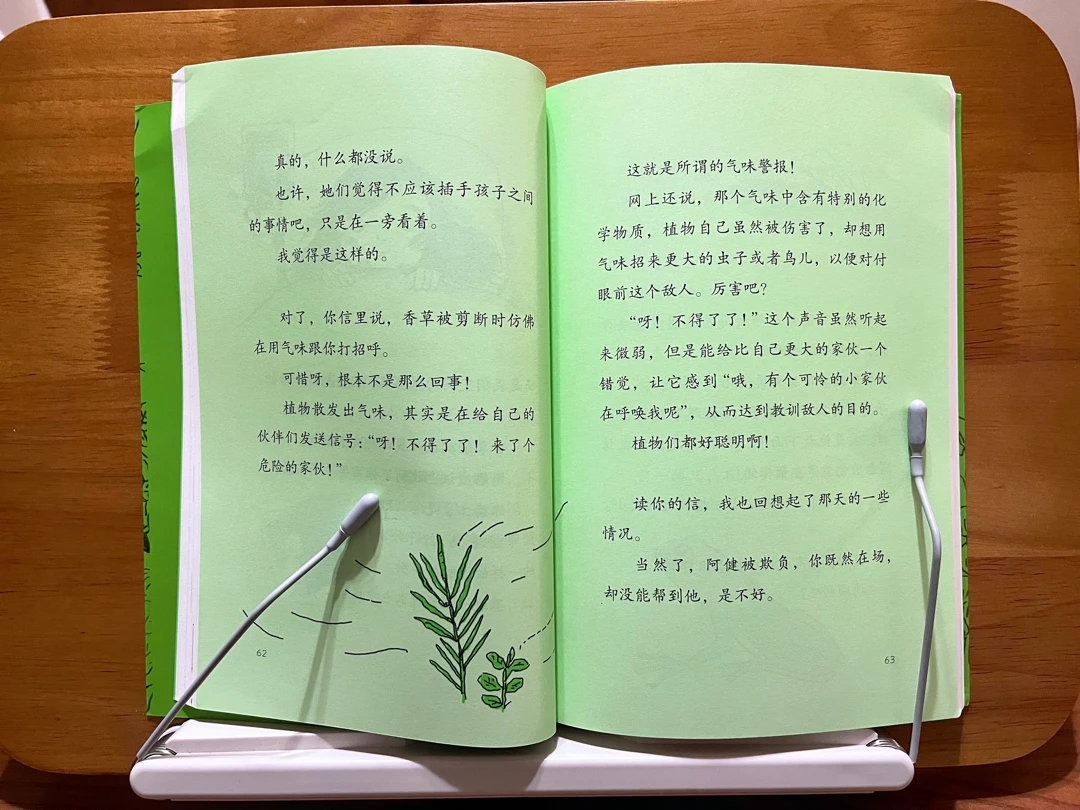 真的，什么都没说。
也许，她们觉得不应该插手孩子之间
的事情吧，只是在一旁看着。
我觉得是这样的。
对了，你信里说，香草被剪断时仿佛
在用气味跟你打招呼。
可惜呀，根本不是那么回事！
植物散发出气味，其实是在给自己的
伙伴们发送信号：“呀！不得了了！来了个
危险的家伙！”
62
这就是所谓的气味警报！
网上还说，那个气味中含有特别的化
学物质，植物自己虽然被伤害了，却想用
气味招来更大的虫子或者鸟儿，以便对付
眼前这个敌人。厉害吧？
“呀！不得了了！”这个声音虽然听起
来微弱，但是能给比自己更大的家伙一个
错觉，让它感到“哦，有个可怜的小家伙
在呼唤我呢”，从而达到教训敌人的目的。
植物们都好聪明啊！
读你的信，我也回想起了那天的一些
情况。
当然了，阿健被欺负，你既然在场，
却没能帮到他，是不好。
63